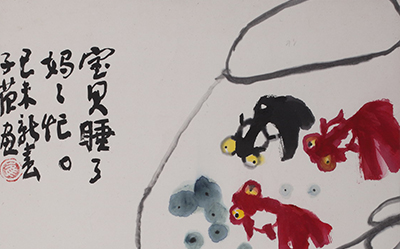 宝贝睡了
妈妈忙。
己未新春
子范画